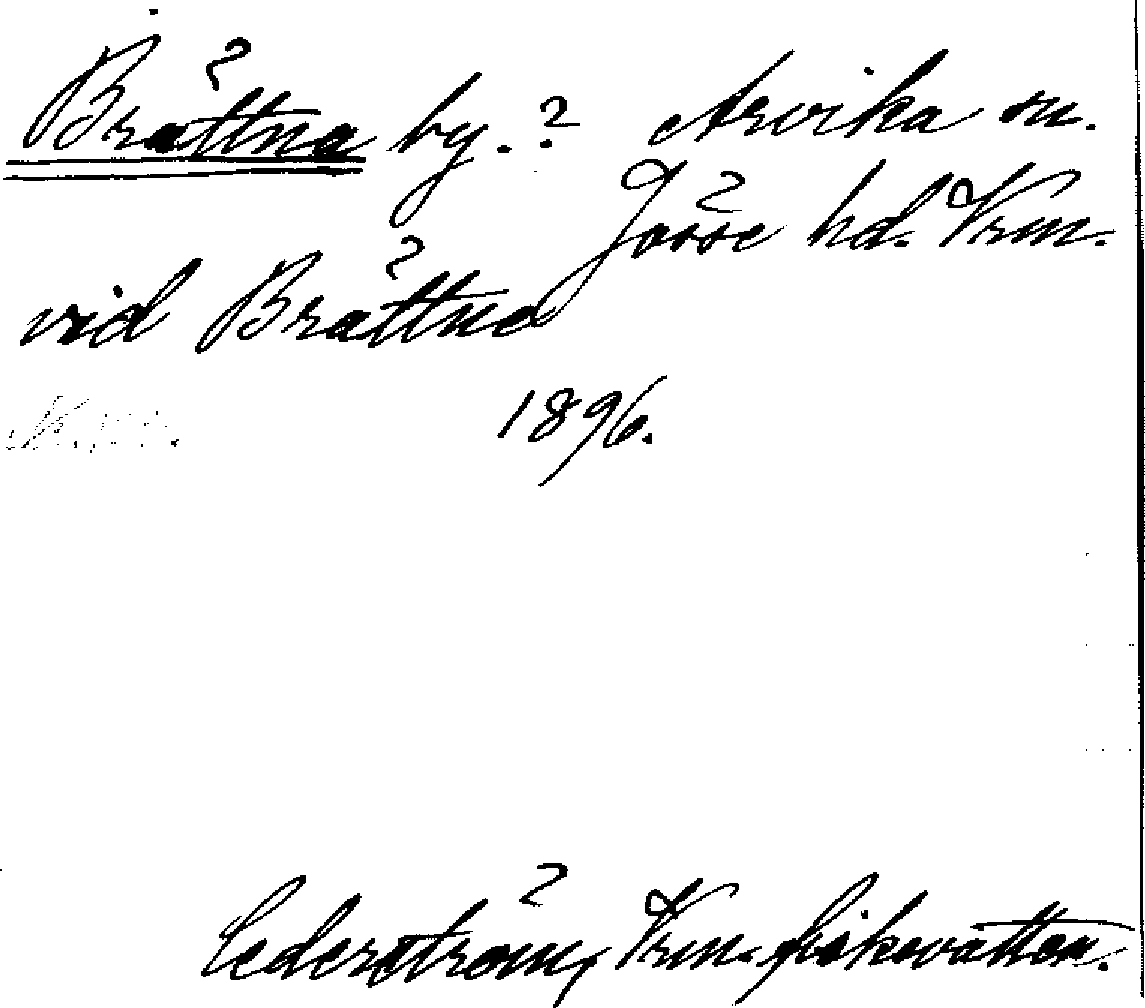 Brättna by.? Arvika sn.
Jösse hd. Vrm.
vid Brättna
1896.
Cederström, Vrm. fiskevatten.